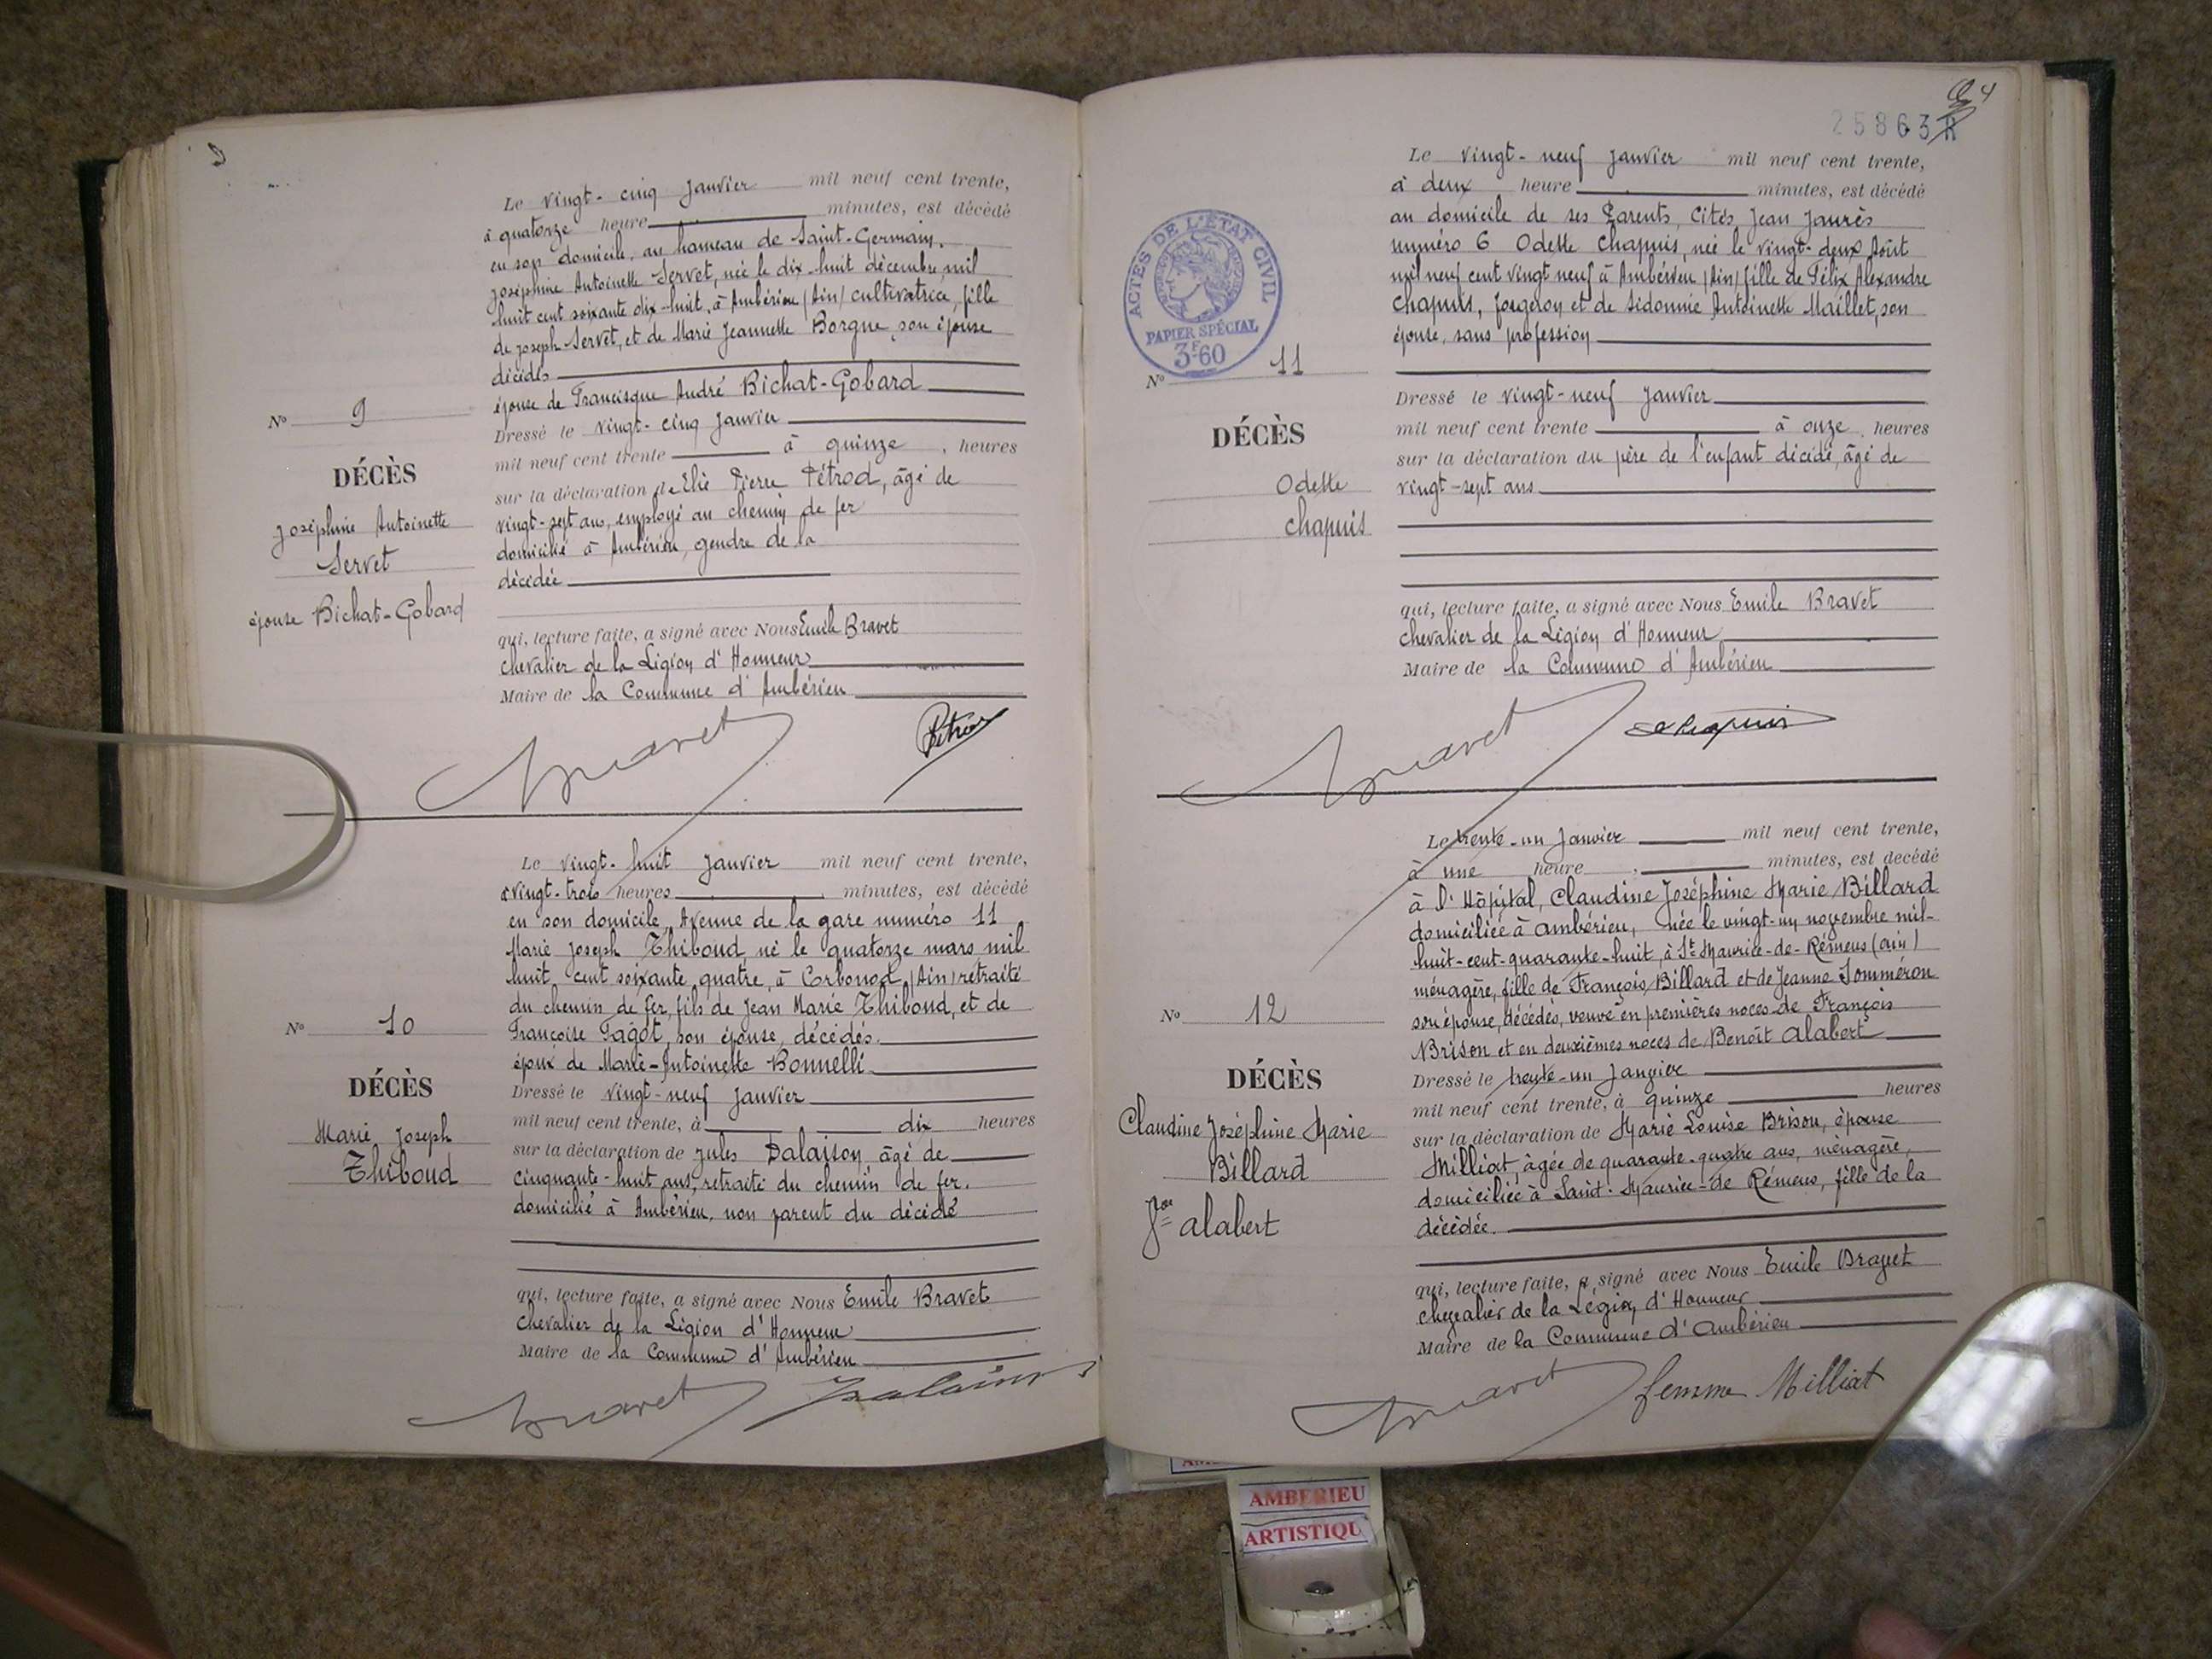 Le vingt-cinq janvier mil neuf cent trente,
à quatorze heure minutes, est décédé
en son domicile, au hameau de Saint-Germain,
Joséphine Antoinette Servet, née le dix-huit décembre mil
huit cent soixante dix-huit, à Ambérieu (Ain) cultivatrice, fille
de Joseph Servet, et de Marie Jeannette Borgne, son épouse
décédés
épouse de Francisque André Bichat-Gobard
Dressé le vingt-cinq janvier
mil neuf cent trente à quinze, heures
sur la déclaration de Elie Pierre Pétrod, âgé de
vingt-sept ans, employé au chemin de fer
domicilié à Ambérieu, gendre de la
décédée
qui, lecture faite, a signé avec Nous Emile Bravet
chevalier de la Légion d'Honneur
Maire de la Commune d'Ambérieu
Bravet Pétrod
No 9
DÉCÈS
Joséphine Antoinette
Servet
épouse Bichat-Gobard
Le vingt-huit janvier mil neuf cent trente,
à vingt-trois heures minutes, est décédé
en son domicile, Avenue de la gare numéro 11
Marie Joseph Thiboud, né le quatorze mars mil
huit cent soixante quatre, à Corbonod (Ain) retraité
du chemin de fer, fils de Jean Marie Thiboud, et de
Françoise Fagot, son épouse, décédés.
époux de Marie-Antoinette Bonnelli
Dressé le vingt-neuf janvier
mil neuf cent trente, à dix heures
sur la déclaration de Jules Dalaison âgé de
cinquante-huit ans, retraité du chemin de fer.
domicilié à Ambérieu, non parent du décédé
qui, lecture faite, a signé avec Nous Emile Bravet
chevalier de la Légion d'Honneur
Maire de la Commune d'Ambérieu
Bravet Dalaison
No 10
DÉCÈS
Marie Joseph
Thiboud
4
25863 R
ACTES DE L'ÉTAT CIVIL
PAPIER SPÉCIAL
3F60
Le vingt-neuf janvier mil neuf cent trente,
à deux heure minutes, est décédé
au domicile de ses Parents, Cités Jean Jaurès
numéro 6 Odette Chapuis, née le vingt-deux Août
mil neuf cent vingt neuf à Ambérieu (Ain) fille de Félix Alexandre
Chapuis, forgeron et de Sidonnie Antoinette Maillet, son
épouse, sans profession
Dressé le vingt-neuf janvier
mil neuf cent trente à onze, heures
sur la déclaration du père de l'enfant décédé, âgé de
vingt-sept ans
qui, lecture faite, a signé avec Nous Emile Bravet
chevalier de la Légion d'Honneur
Maire de la Commune d'Ambérieu
Bravet Chapuis
No 11
DÉCÈS
Odette
Chapuis
Le trente-un Janvier mil neuf cent trente,
à une heure minutes, est decédé
à l'Hôpital, Claudine Joséphine Marie Billard
domiciliée à Ambérieu, née le vingt-un novembre mil-
huit-cent-quarante-huit, à St Maurice-de-Rémens (ain)
ménagère, fille de François Billard et de Jeanne Jomméron
son épouse, décédés, veuve en premières noces de François
Brison et en deuxièmes noces de Benoît Alabert
Dressé le trente-un Janvier
mil neuf cent trente, à quinze heures
sur la déclaration de Marie Louise Brison, épouse
Milliat, âgée de quarante-quatre ans, ménagère,
domiciliée à Saint-Maurice-de Rémens, fille de la
décédée.
qui, lecture faite, a signé avec Nous Emile Bravet
chevalier de la Légion d'Honneur
Maire de la Commune d'Ambérieu
Bravet femme Milliat
No 12
DÉCÈS
Claudine Joséphine Marie
Billard
Alabert
AMBERIEU
ARTISTIQU